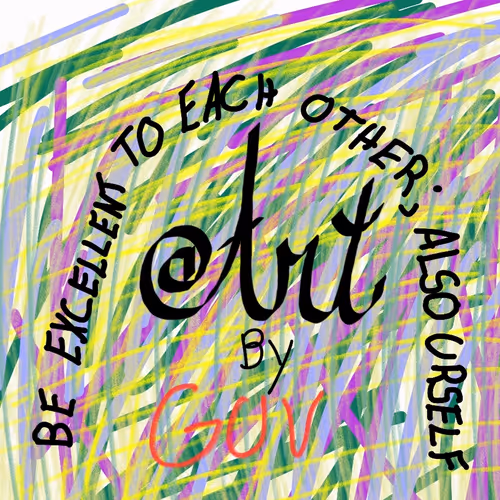 BE EXCELLENT TO EACH OTHER; ALSO URSELF
Art
By
GUV